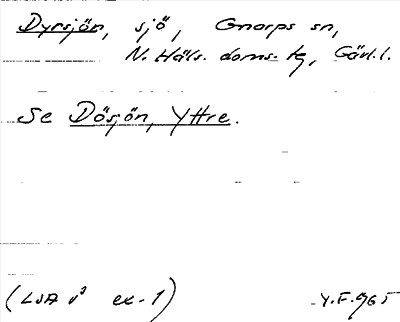 Dyrsjön, sjö, Gnarps sn,
N. Häls. doms. tg, Gävl. l.
Se Dösjön, Yttre.
(LSA v³ ex-1) Y.F. 965